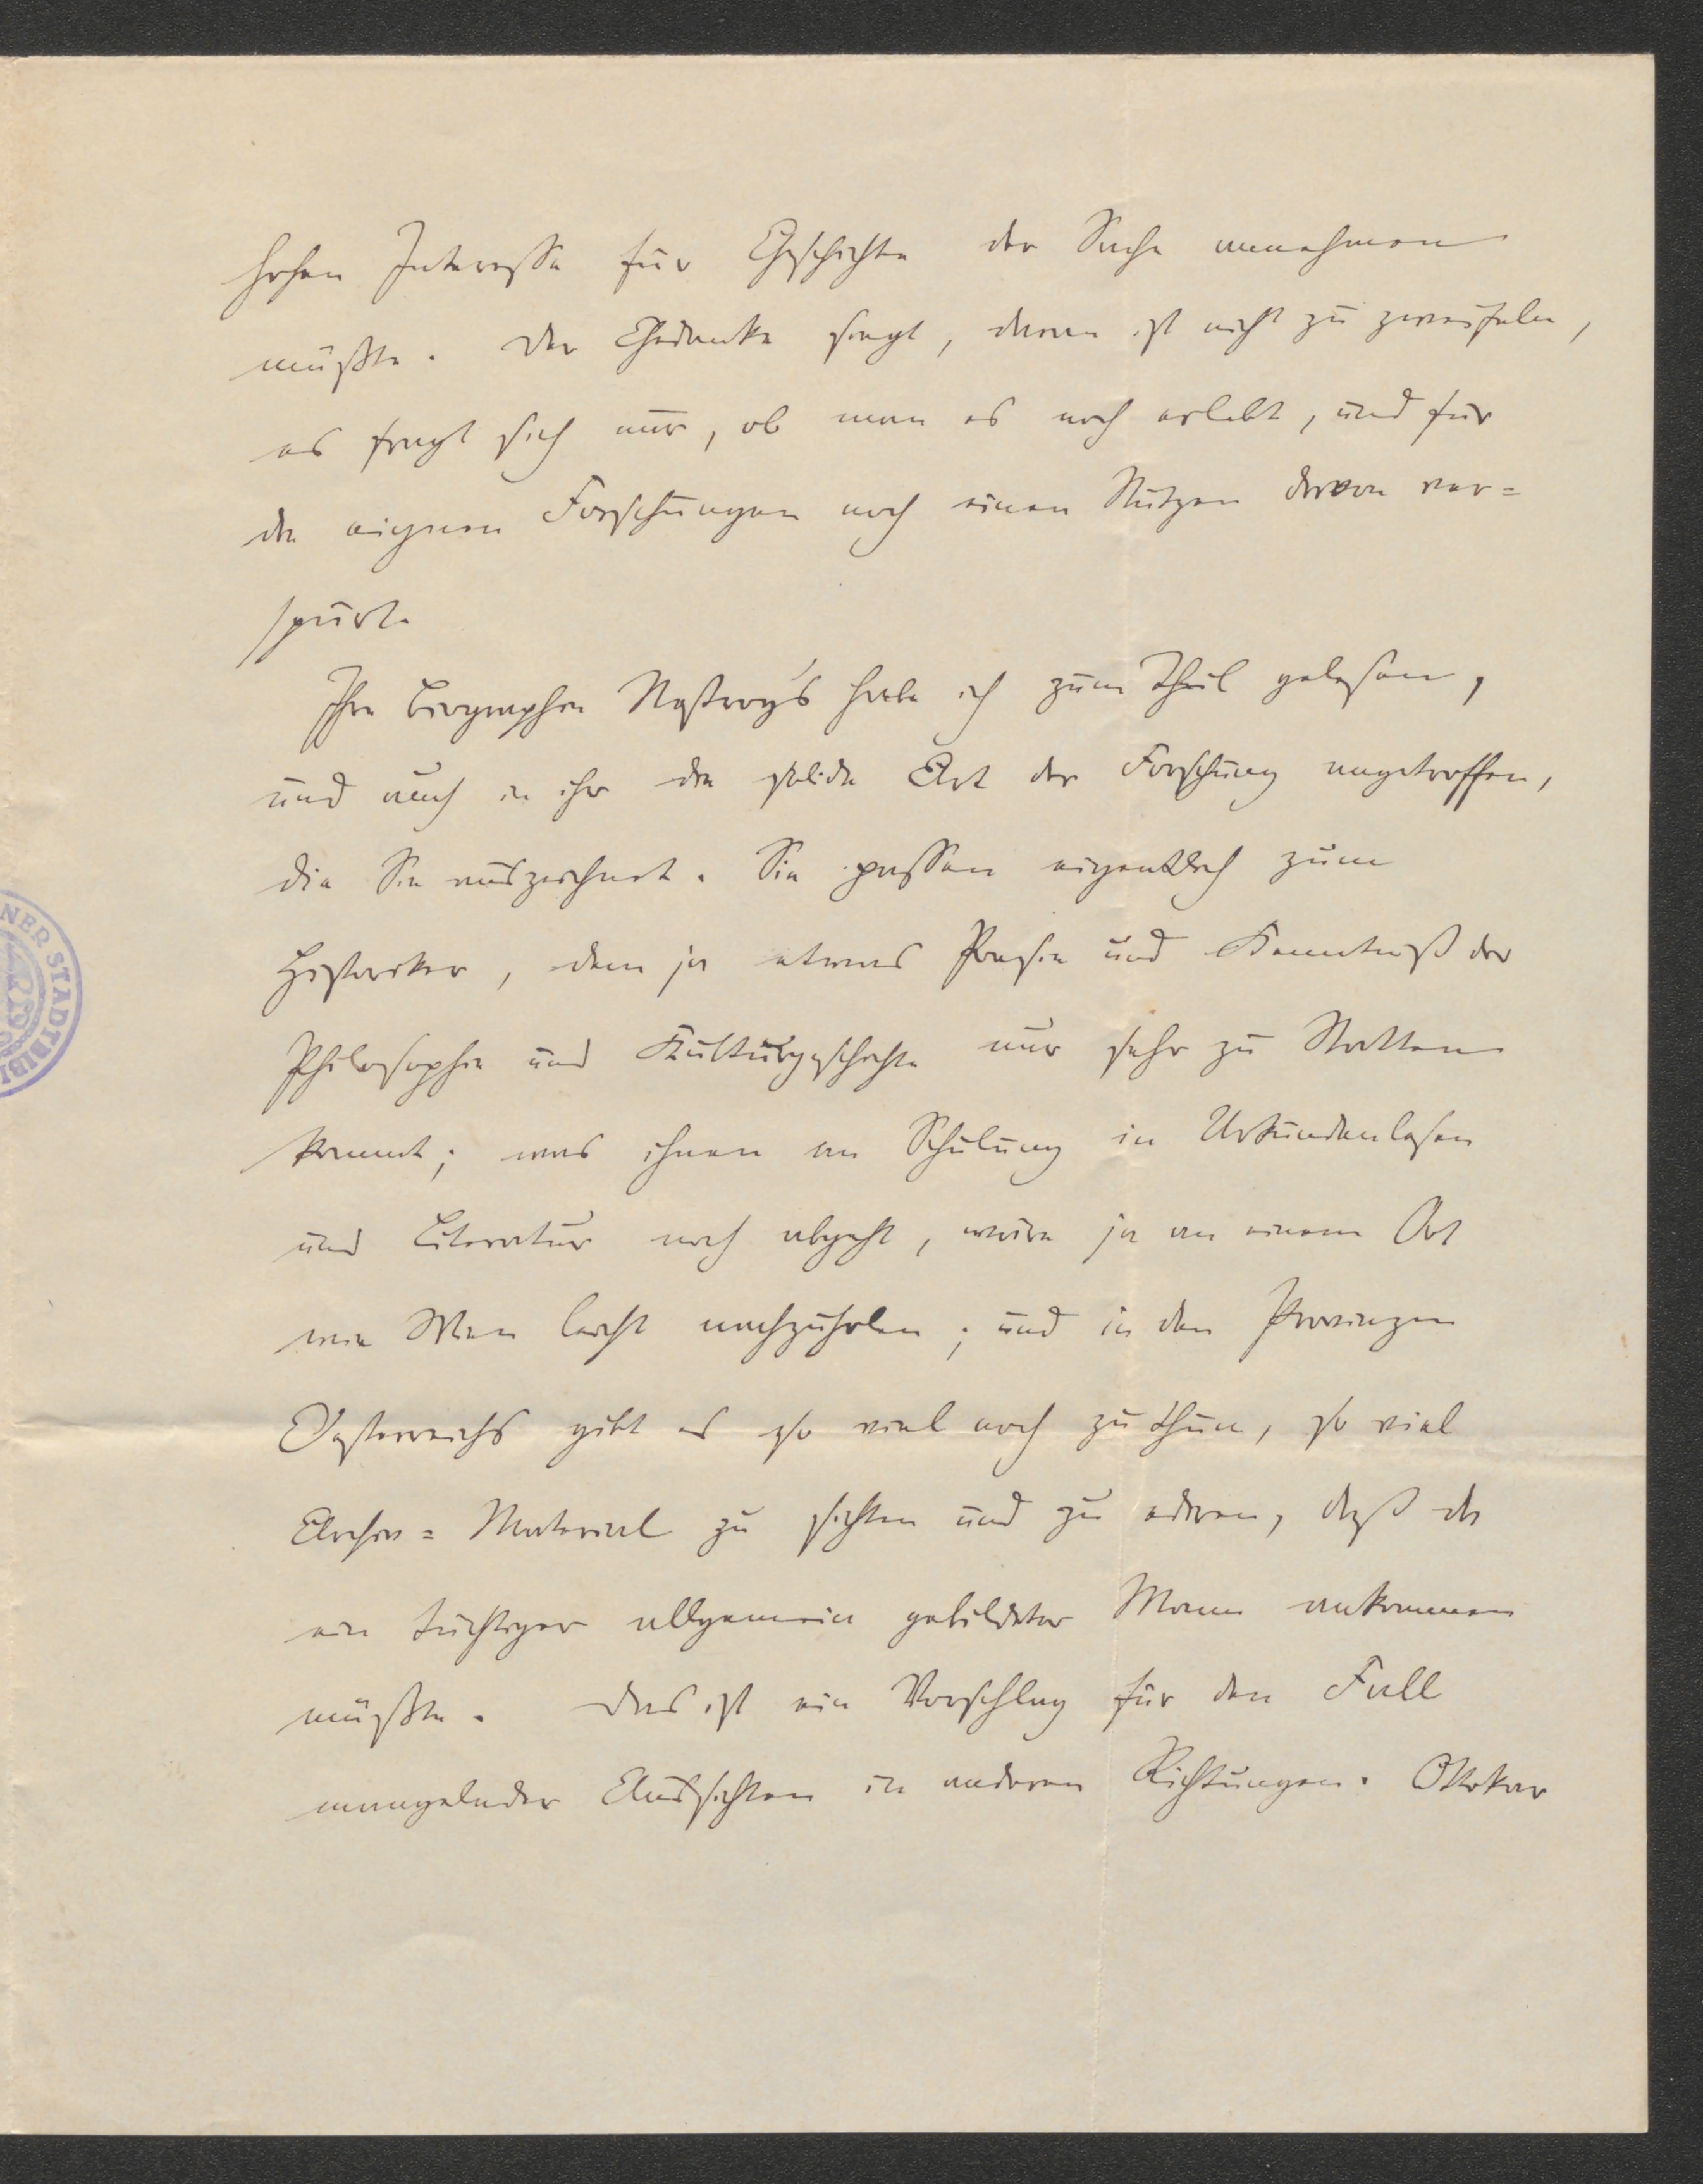 hohen Interesse für Geschichte der Sache annehmen
müßte. Der Gedanke siegt, daran ist nicht zu zweifeln,
es fragt sich nur, ob man es noch erlebt, und für
die eignen Forschungen noch einen Nutzen davon ver=
spürt.
Ihre Biographie Nestroy's habe ich zum Theil gelesen,
und auch in ihr die solide Art der Forschung angetroffen,
die Sie auszeichnet. Sie passen eigentlich zum
Historiker, dem ja etwas Poesie und Kenntniß der
Philosophie und Kulturgeschichte nur sehr zu Statten
kommt; was ihnen an Schulung in Urkundenlesen
und Literatur noch abgeht, wäre ja an einem Ort
wie Wien leicht nachzuholen; und in den Provinzen
Oesterreichs gibt es so viel noch zu thun, so viel
Archiv=Material zu sichten und zu ediren, daß da
ein tüchtiger allgemein gebildeter Mann ankommen
müßte. Das ist ein Vorschlag für den Fall
mangelnder Aussichten in anderen Richtungen. Ottokar
NER STADTBIBL